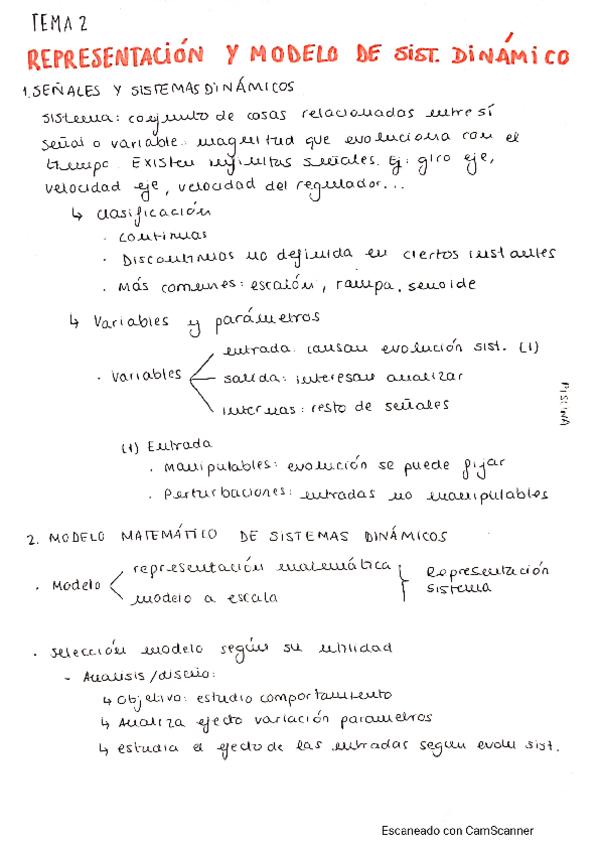 TEMA 2
REPRESENTACIÓN Y MODELO DE SIST. DINÁMICO
1. SEÑALES Y SISTEMAS DINÁMICOS
Sistema: conjunto de cosas relacionadas entre sí
señal o variable: magnitud que evoluciona con el
tiempo. Existen infinitas señales. Ej: giro eje,
velocidad eje, velocidad del regulador...
↳ Clasificación
· continuas
· Discontinuas no definida en ciertos instantes
· Más comunes: escalón, rampa, senoide
↳ Variables y parámetros
· Variables
entrada: causan evolución sist. (1)
salida: interesan analizar
internas: resto de señales
(1) Entrada
· Manipulables: evolución se puede fijar
· Perturbaciones: entradas no manipulables
2. MODELO MATEMÁTICO DE SISTEMAS DINÁMICOS
· Modelo
representación matemática
modelo a escala
Representación
sistema
· Selección modelo según su utilidad
- Analisis/diseño:
↳ Objetivo: estudio comportamiento
↳ Analiza efecto variación parametros
↳ estudia el efecto de las entradas segun evolu sist.
Escaneado con CamScanner